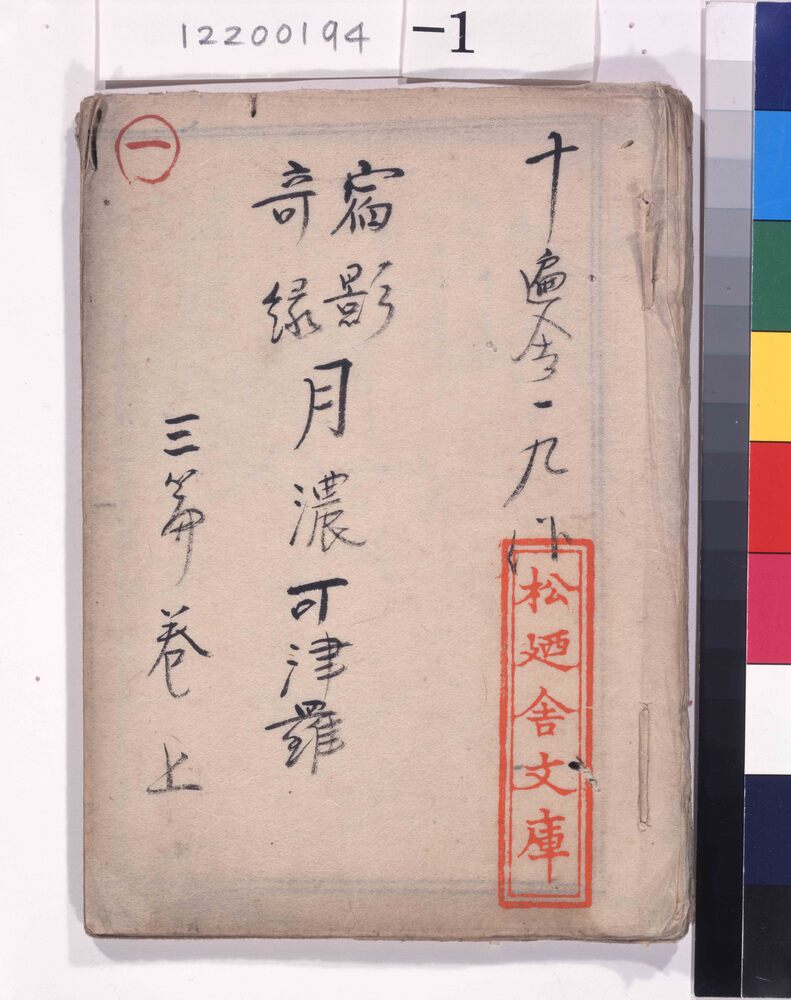 12200194
-1
十遍舎一九作
松廼舎文庫
宿影
奇縁
月濃可津羅
三篇巻上
一